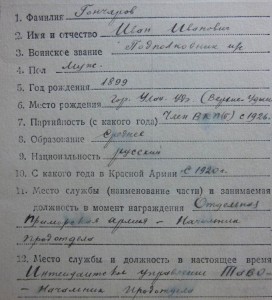 1. Фамилия Гончаров
2. Имя и отчество Иван Иванович
3. Воинское звание Подполковник и/с
4. Пол Муж.
5. Год рождения 1899
6. Место рождения гор. Улан-Удэ (Верхне-Удинск
7. Партийность (с какого года) Член ВКП(б) с 1926
8. Образование Среднее
9. Национальность русский
10. С какого года в Красной Армии с 1920 г.
11. Место службы (наименование части) и занимаемая
должность в момент награждения Отдельная
Приморская армия - Начальник
Продотдела
12. Место службы и должность в настоящее время
Интендантское управление ТавВО -
Начальник Продотдела